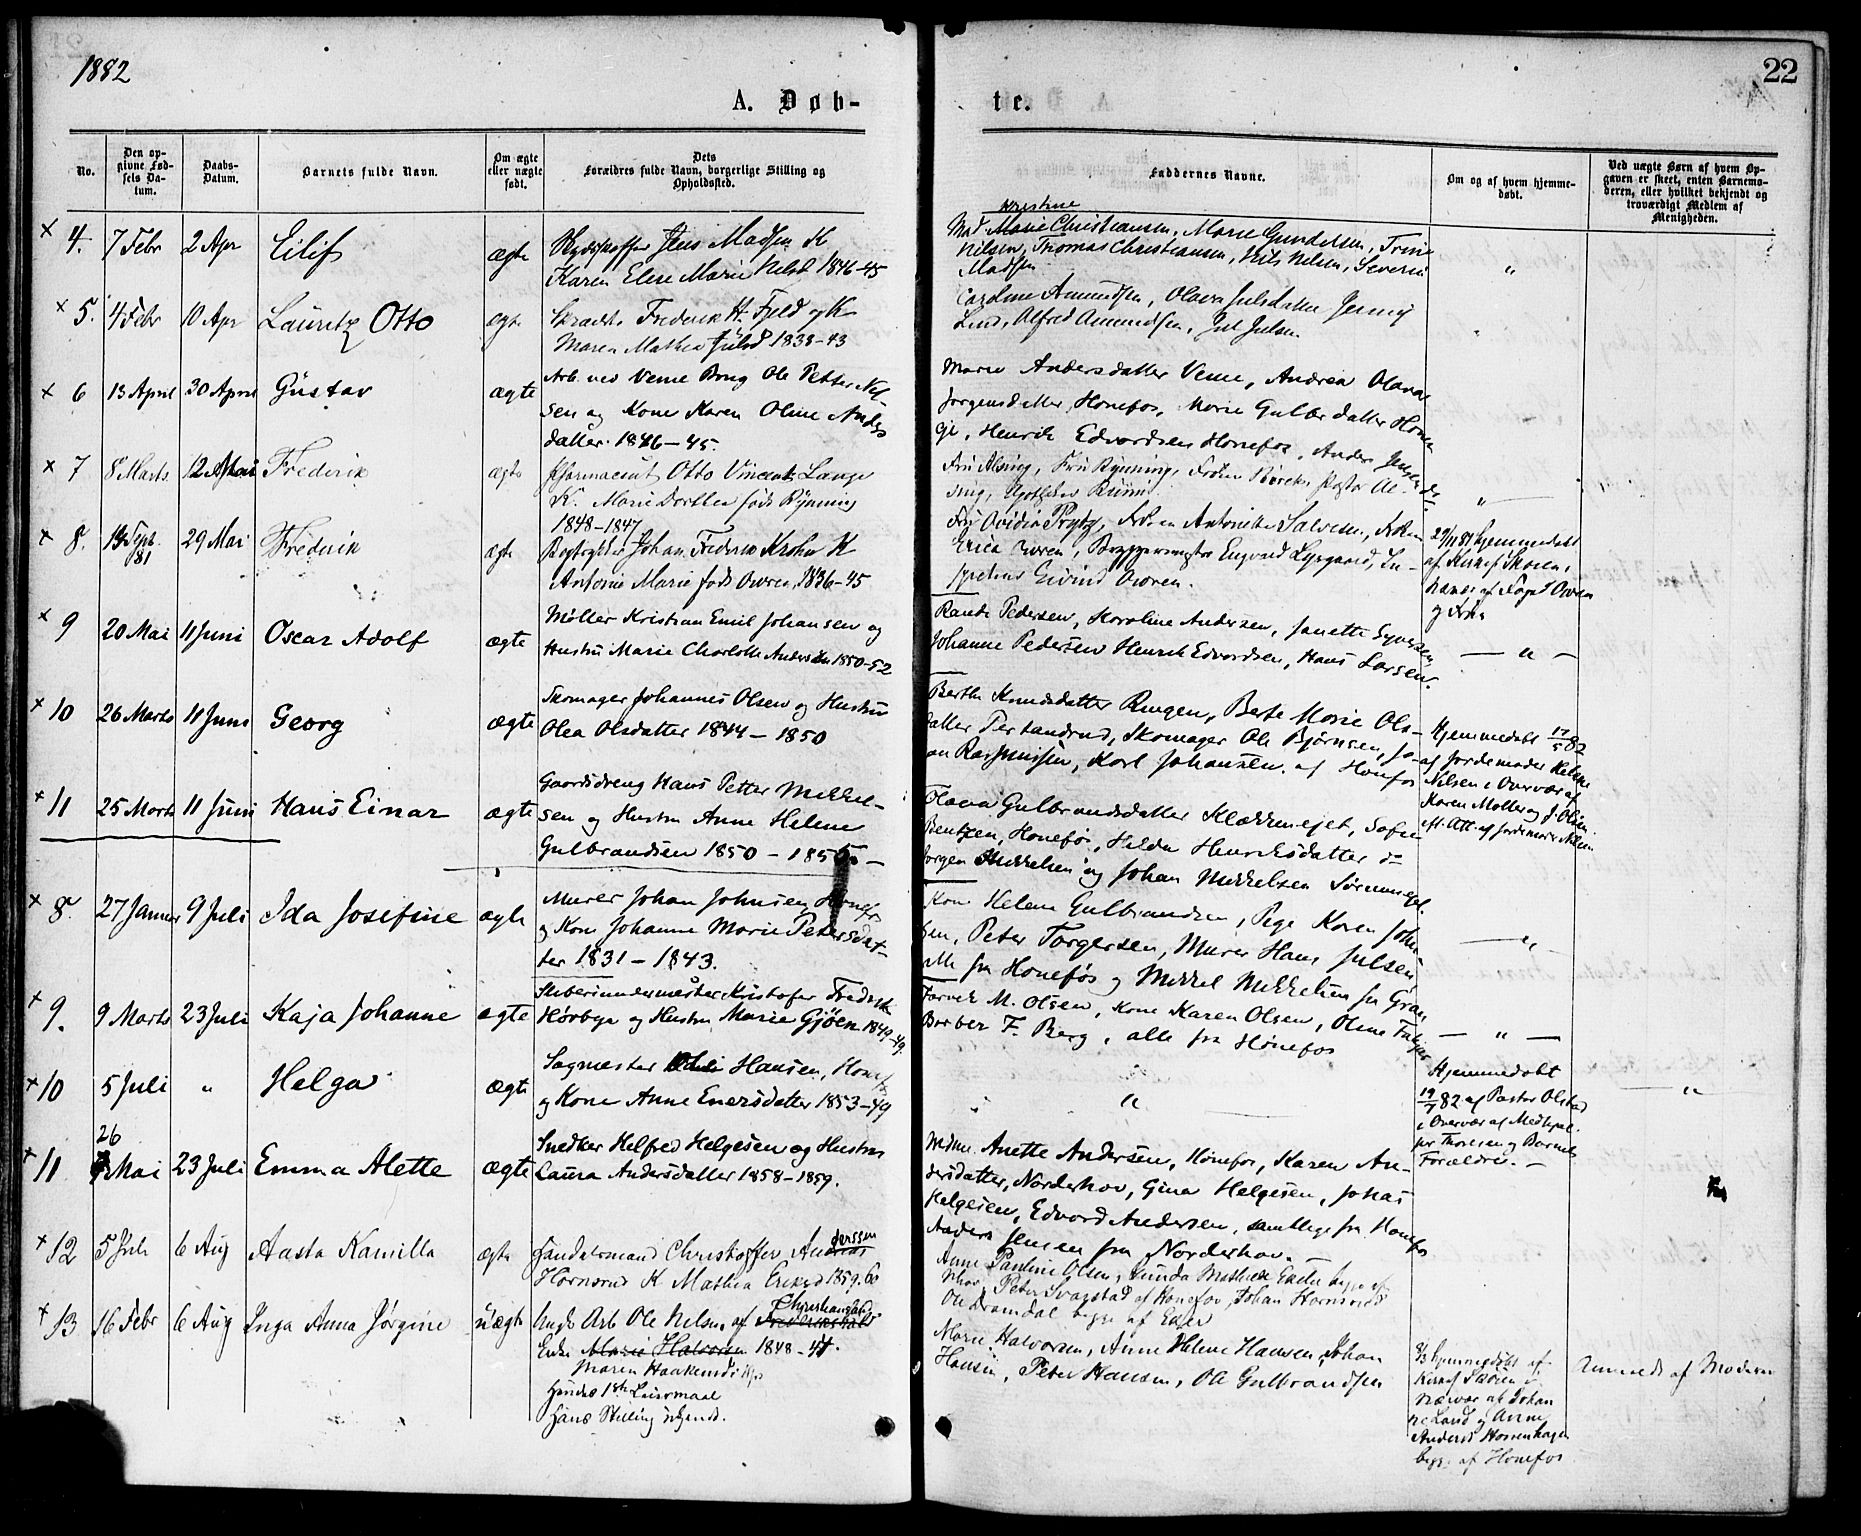 1882
22
A. Døb-
te.
No.
Den op-
givne Fød-
sels Da-
tum.
Daabs-
Datum.
Barnets fulde Navn.
Om ægte
eller uægte
født.
Dets
Forældres fulde Navn, borgerlige Stilling og
Opholdssted.
Faddernes Navne.
Om og af hvem hjemme-
døbt.
Ved uægte Børn af hvem Op-
gaven er skeet, enten Barnemo-
deren, eller hvilket bekjendt og
troværdigt Medlem af
Menigheden.
× 4. 7 Febr 2 Apr Eilif ægte
Jens Madsen K
Karen Elise Marie Nelsd 1846-45
Kristine
Marie Christiansen, Marie Gundersen, Trine
Nilsen, Thomas Christiansen, Nils Nilsen, Severin
Madsen
"
× 5. 4 Febr 10 Apr Lauritz Otto ægte
Frederik H. Fjeld og K
Maren Mathea Julsd 1838-43
Caroline Amundsen, Olava Julsdatter Jenny
Lund, Alfred Amundsen, Jul Julsen
"
× 6 13 April 30 April Gustav ægte
Arb. ved Veme Brug Ole Petter Nil-
sen og Kone Karen Oline Anders
datter. 1846-45.
Marie Andersdatter Veme, Andrea Olava
Jørgensdatter, Hønefos, Marie Gulbrdatter Honn
Henrik Edvardsen Hønefos, Anders Jensen
× 7 8 Marts 12 Mai Frederik ægte
Pharmaceut Otto Vincent Lange
K. Marie Dorthea født Rynning
1848-1847
Fru Alsing, Fru Rynning, Frøken Pastor Al-
sing, Apotheker
"
× 8. 13 Sept. 81 29 Mai Frederik ægte
Bogtrykker Johan Frederik Krohn K
Antonie Marie født Owren, 1836-45
Fru Ovidia Prytz, Frøken Antonette Salvesen, Frøken
Erica Owren, Bryggerimester Engvald Lysgaard, In-
Eivind Owren.
29/11 81 hjemmedøbt
af Kirkes.
nærvær af Foged Owren
og Frue
× 9 20 Mai 11 Juni Oscar Adolf ægte
Møller Kristian Emil Johansen og
Hustru Marie Charlotte Andersen 1850-52
Randi Pedersen, Karoline Andersen, Janette Syversen
Johanne Pedersen Henrik Edvardsen, Hans Larsen.
— " —
× 10 26 Marts 11 Juni Georg ægte
Skomager Johannes Olsen og Hustru
Olea Olsdatter 1844-1850
Berthe Knudsdatter Ringen, Berte Marie Ols-
datter Skomager Ole Bjørnsen, Jo-
an Rasmussen, Karl Johansen. af Hønefos
Hjemmedøbt 17/5 82
af Jordemoder Helene
Nilsen i Overvær af
Karen Møller og J. Olsen
Att. af Jordemoder Nilsen
× 11 25 Marts 11 Juni Hans Einar ægte
Gaardsdreng Hans Petter Mikkel-
sen og Hustru Anne Helene
Gulbrandsen 1850-1855—
Gulbrandsdatter Klækkenejet, Sofie
Bentzen, Hønefos, Helda Henriksdatter do
Jørgen Mikkelsen og Johan Mikkelsen
× 8. 27 Januar 9 Juli Ida Josefine ægte
Murer Johan Johnsen, Hønefos
og Kone Johanne Marie Petersdat-
ter 1831-1843.
Kone Helene Gulbrandsen, Pige Karen John
sen, Peter Torgersen, Murer Hans Julsen
alle fra Hønefos og Mikkel Mikkelsen fra Gran
— " —
× 9. 9 Marts 23 Juli Kaja Johanne ægte
Skiberiundermester Kristofer Fredrik
Hørbye og Hustru Marie Gjøen 1849-49.
M. Olsen, Kone Karen Olsen, Oline
Barber F. Berg, alle fra Hønefos
— " —
× 10 5 Juli " Helga ægte
Sagmester Hansen, Honefos
og Kone Anne Enersdatter 1853-49
"
Hjemmedøbt
19/7 82 af Pastor Olstad
i Overvær af Medhjæl-
per Thoresen og Barnets
Forældre. —
"
× 11 26 Mai 23 Juli Emma Alette ægte
Snedker Helfred Helgesen og Hustru
Laura Andersdatter 1858-1859.
Anette Andersen, Hønefos, Karen An-
dersdatter, Norderhov, Gina Helgesen, Jonas
Helgesen, Edvard Andersen, samtlige fra Hønefos
Anders Jensen fra Norderhov. —
× 12 5 Juli 6 Aug Aasta Kamilla ægte
Handelsmand Christoffer Anderssen
Hornsrud K Mathea Eriksd 1859. 60
Anne Pauline Olsen, Gunda Mathea begge af
Nhov, Peter Svagstad af Hønefos, Johan Hornsrud
Ole Dramdal begge af
× 13 16 Febr 6 Aug Inga Anna Jørgine uægte
Ungk Arb Ole Nilsen af Christiansand
Enke Marie Halvorsen 1848-41.
Maren Haakensd
Hendes 1ste Leiermaal
Hans Stilling ubekjendt.
Marie Halvorsen, Anne Helene Hansen, Johan
Hansen, Peter Hansen, Ole Gulbrandsen
8/3 hjemmedøbt af
nærvær af Johan
ne Lund og Anne
Andersd
begge af Hønefos
Anmeldt af Moderen